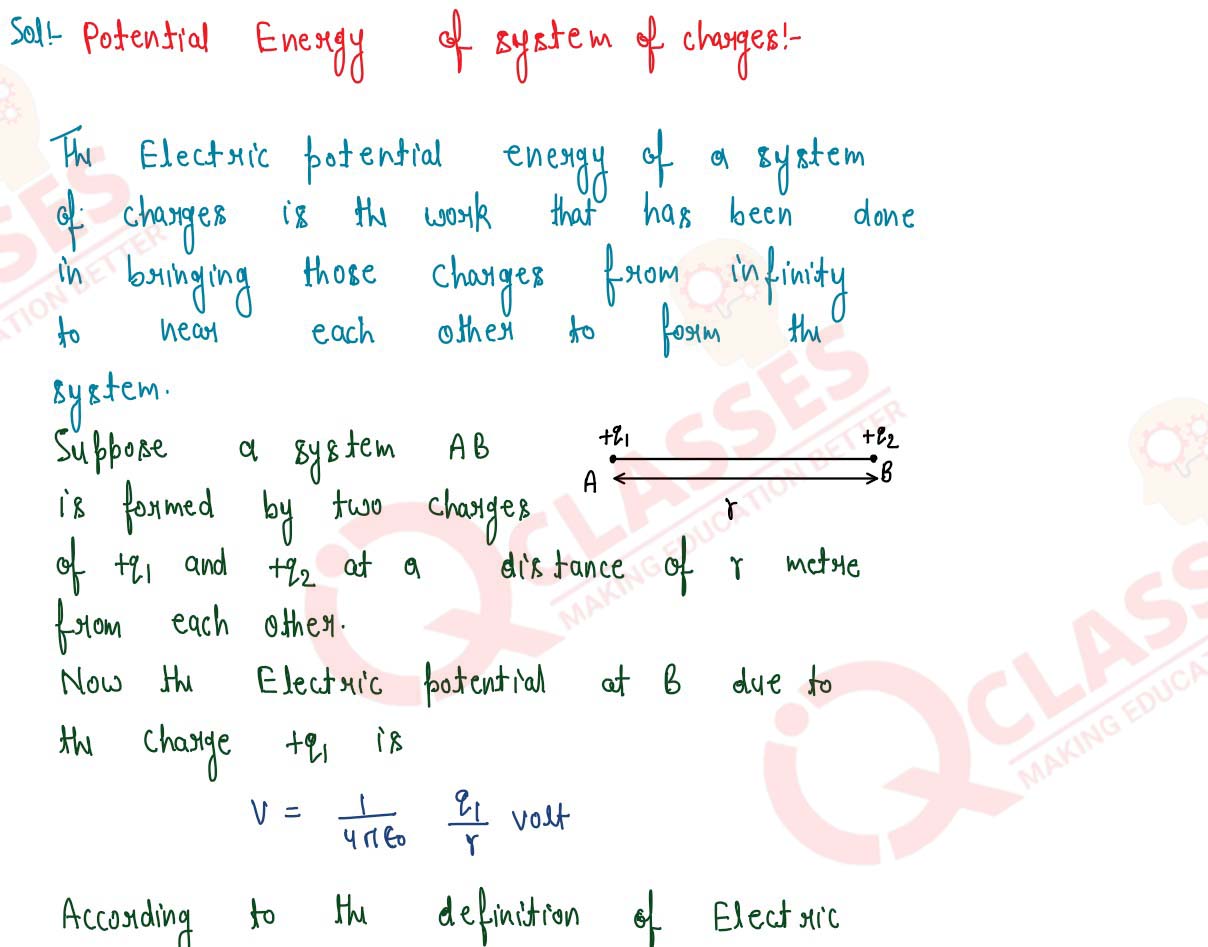 Sol:- Potential Energy of system of charges:-
The Electric potential energy of a system
of charges is the work that has been done
in bringing those charges from infinity
to near each other to form the
system.
Suppose a system AB
+q1 +q2
A B
r
is formed by two charges
of +q1 and +q2 at a distance of r metre
from each other.
Now the Electric potential at B due to
the charge +q1 is
V = 1/4πϵ0 q1/r volt
According to the definition of Electric
SES
ATION BETTER
CLASSES
MAKING EDUCATION BETTER
CLASS
MAKING EDUCA